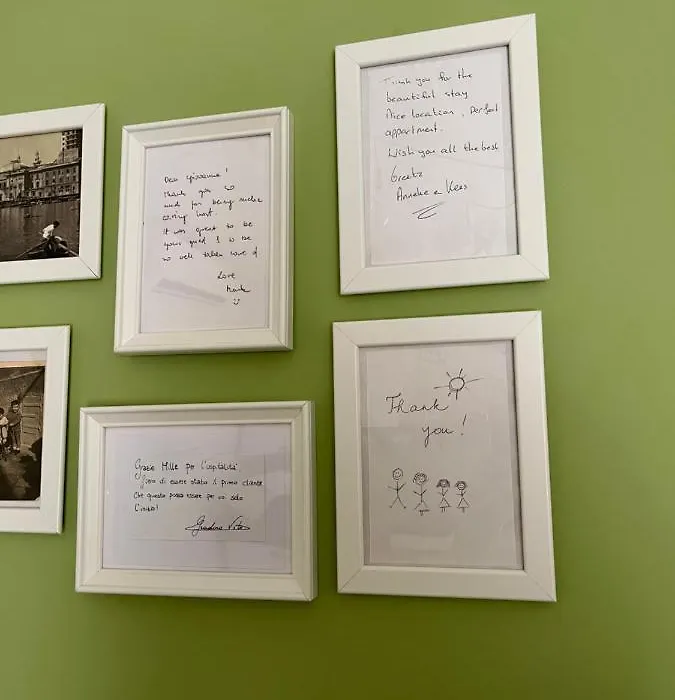 Thank you for the
beautiful stay
Nice location, Perfect
appartment.
Wish you all the best
Greetz
Anneke e Kees
Dear Giovanna!
thank you
and for being such a
caring host.
It was great to be
your guest & to be
so well taken care of
Love
Thank
you!
Grazie Mille per l'ospitalità
Fiero di essere stato il primo cliente
Che questo possa essere per voi solo
L'inizio!